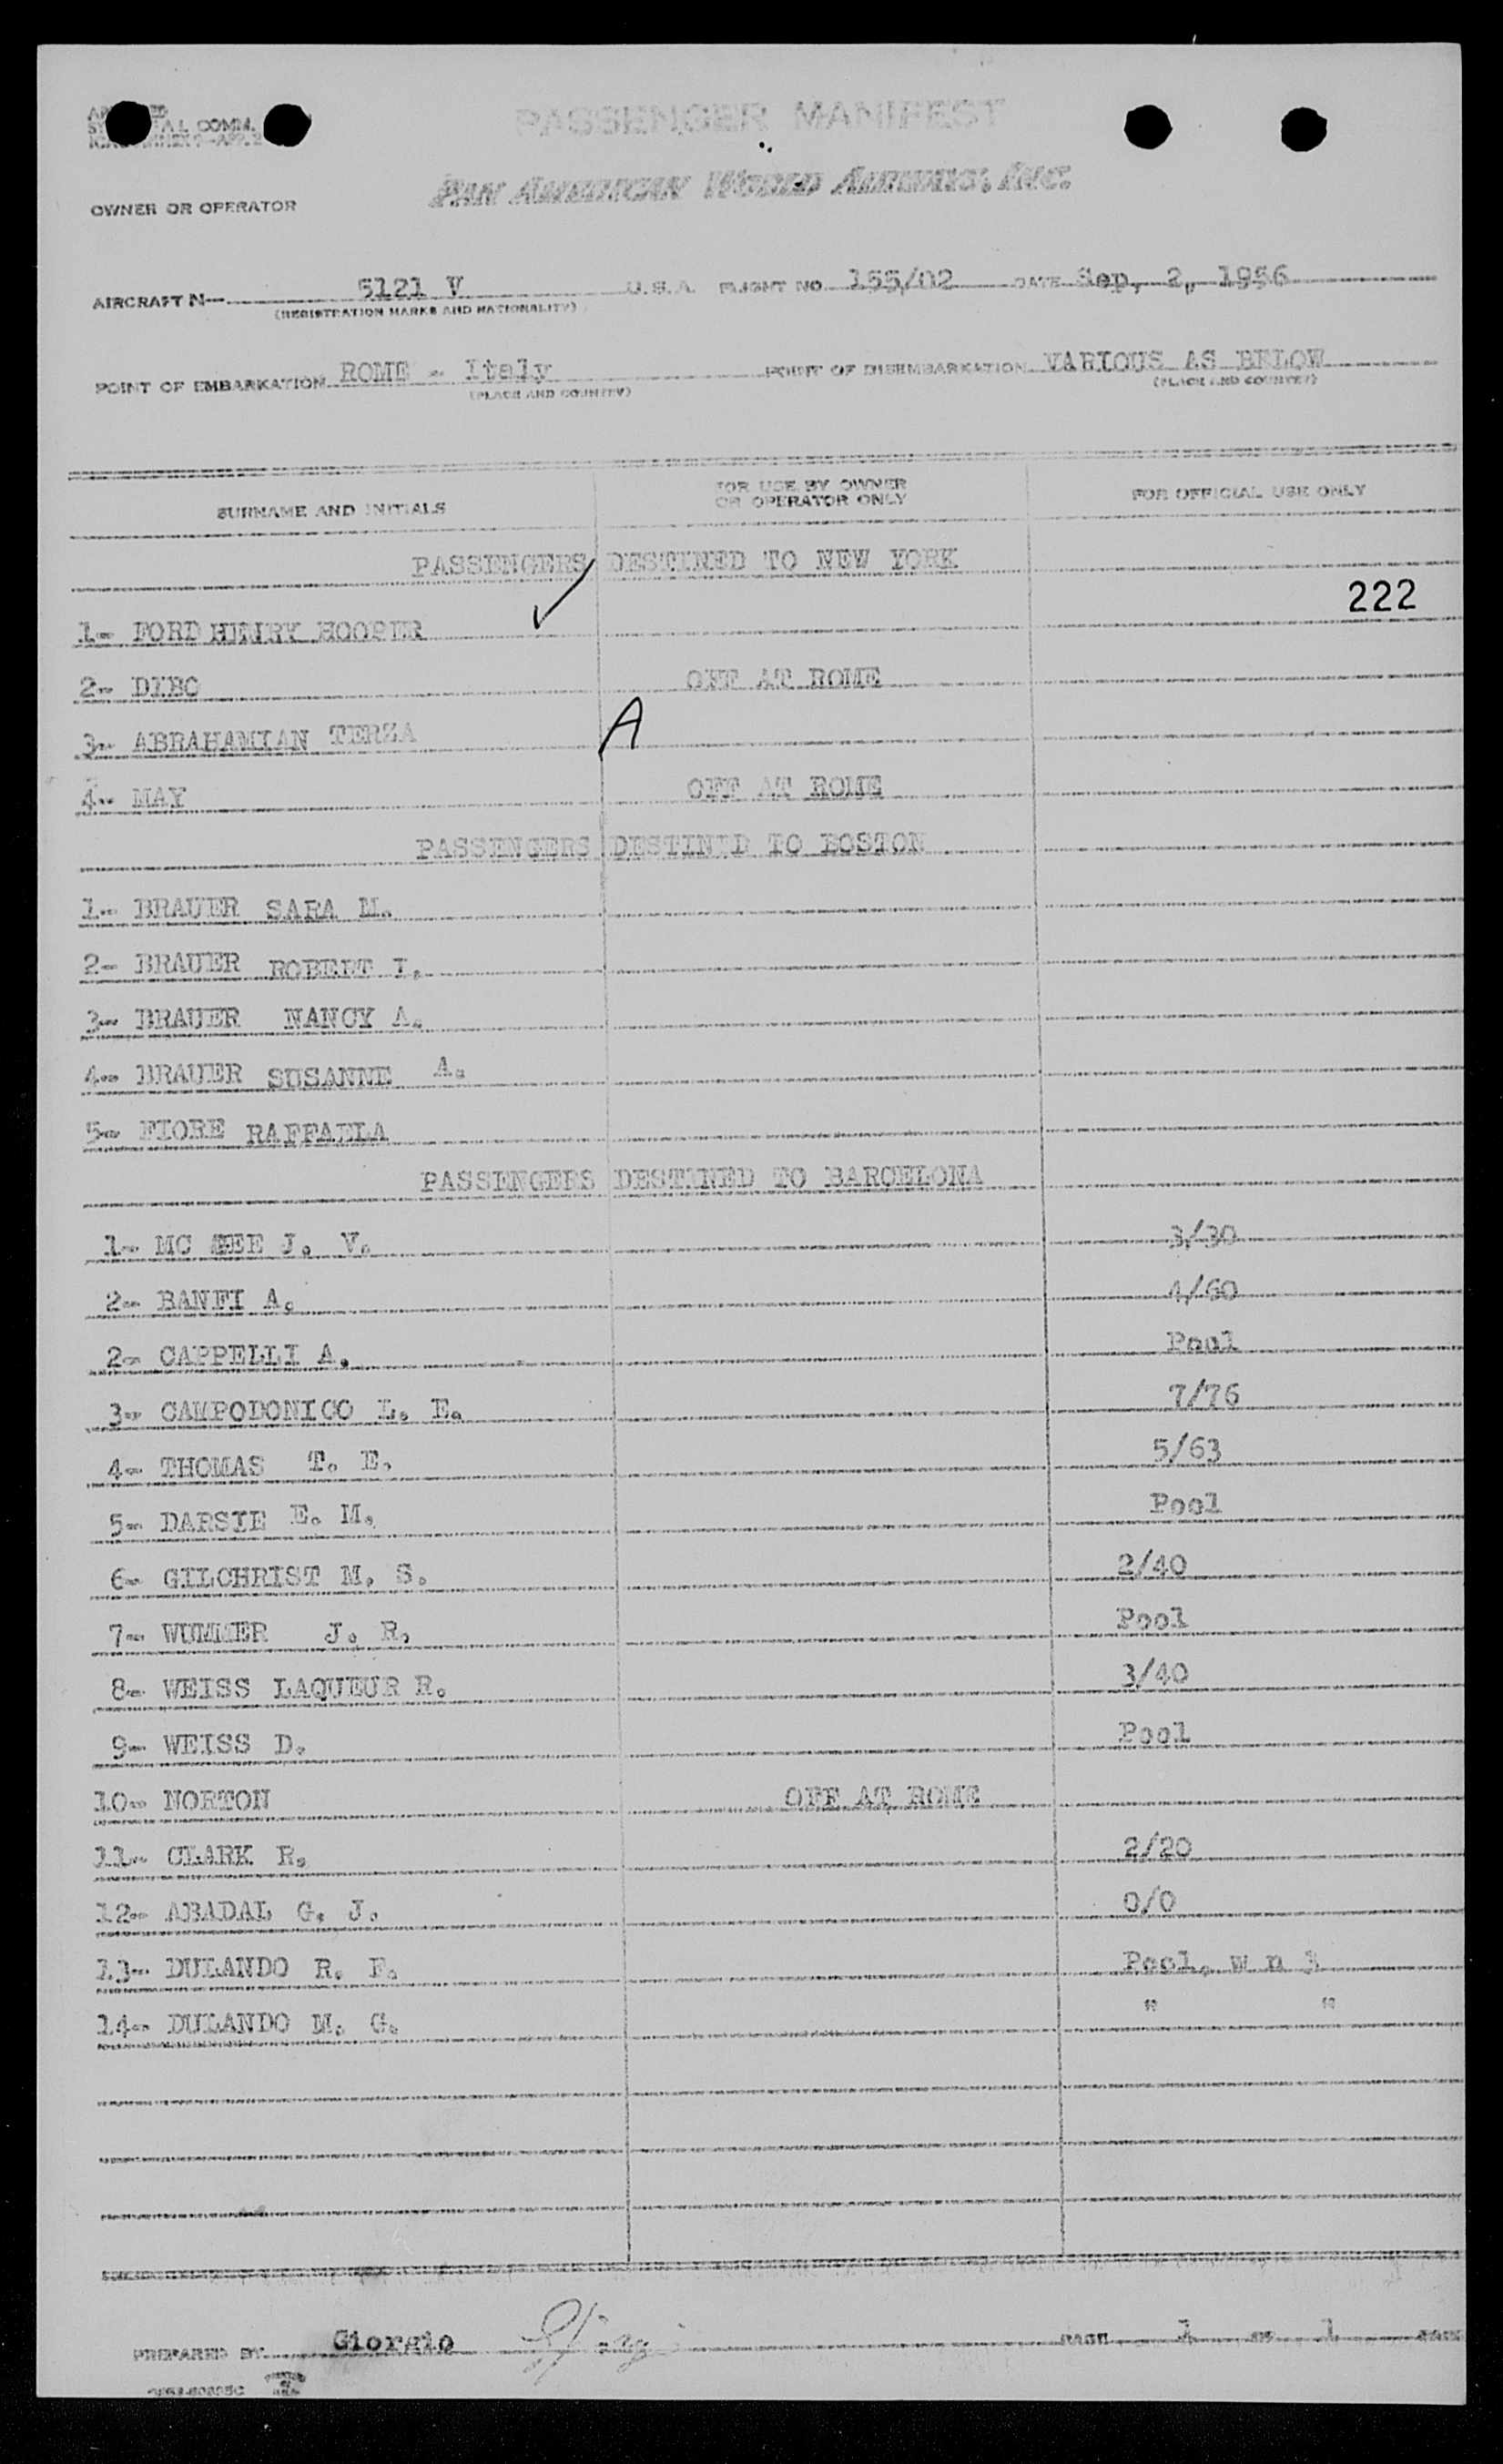 PASSENGER MANIFEST
PAN AMERICAN WORLD AIRWAYS, INC.
OWNER OR OPERATOR
AIRCRAFT N- 5121 V U.S.A. FLIGHT NO. 155/02 DATE Sep, 2, 1956
(REGISTRATION MARKS AND NATIONALITY)
POINT OF EMBARKATION ROME - Italy POINT OF DISEMBARKATION VARIOUS AS BELOW
(PLACE AND COUNTRY) (PLACE AND COUNTRY)
SURNAME AND INITIALS FOR USE BY OWNER OR OPERATOR ONLY FOR OFFICIAL USE ONLY
PASSENGERS DESTINED TO NEW YORK
222
1- FORD HENRY HOOPER ✓
2- DYBO OFF AT ROME
3- ABRAHAMIAN TERZA A
4- MAY OFF AT ROME
PASSENGERS DESTINED TO BOSTON
1- BRAUER SARA M.
2- BRAUER ROBERT I.
3- BRAUER NANCY A.
4- BRAUER SUSANNE A.
5- FIORE RAFFAELA
PASSENGERS DESTINED TO BARCELONA
1- MC GEE J. V. 3/30
2- BANFI A. 4/60
2- CAPPELLI A. Pool
3- CAMPODONICO L. E. 7/76
4- THOMAS T. E. 5/63
5- DARSIE E. M. Pool
6- GILCHRIST M. S. 2/40
7- WUMMER J. R. Pool
8- WEISS LAQUEUR R. 3/40
9- WEISS D. Pool
10- NORTON OFF AT ROME
11- CLARK R. 2/20
12- ABADAL G. J. 0/0
13- DULANDO R. F. Pool. w n 3
14- DULANDO M. G. " "
PREPARED BY Giorgio PAGE 1 OF 1